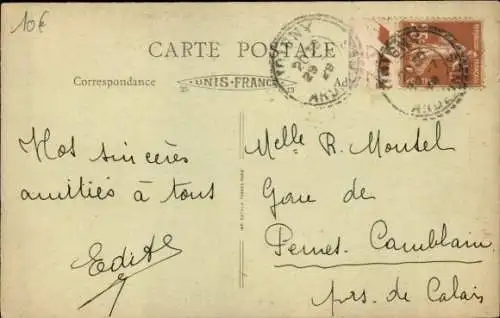 10€
CARTE POSTALE
Correspondance
UNIS-FRANCE
Nos sincères
amitiés à tous
Edith
Melle R. Moutel
Gare de
Pernes-Camblain
pas. de Calais